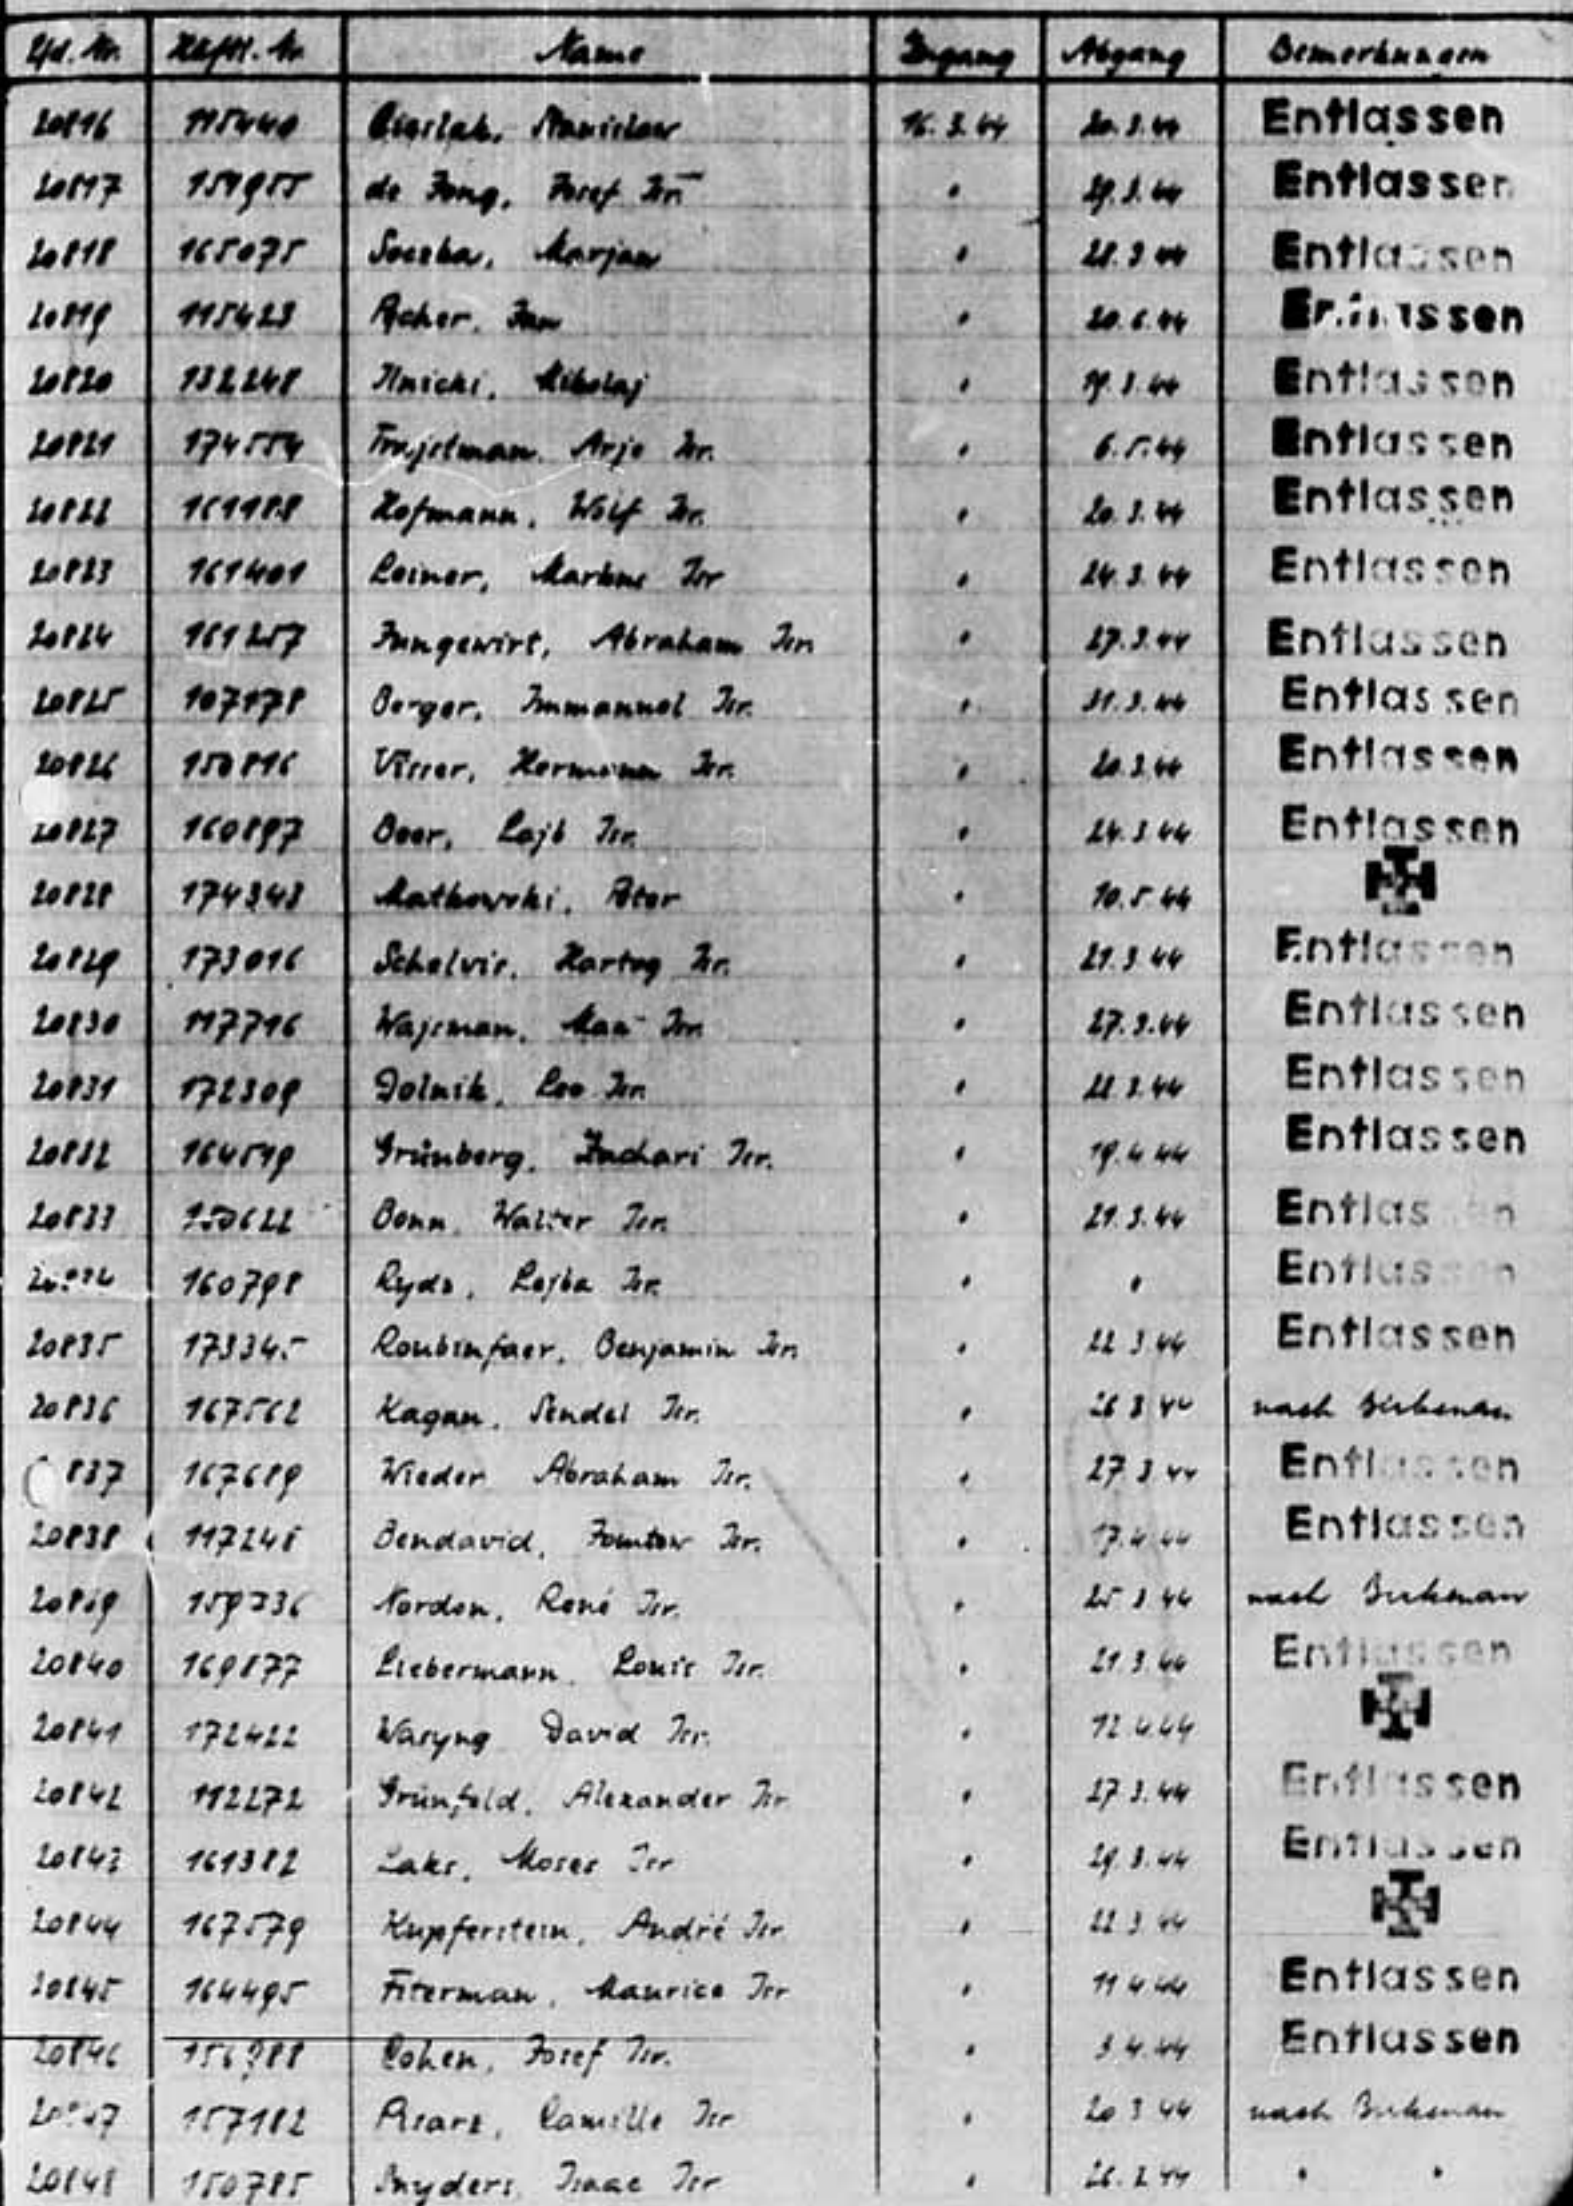 Lfd. Nr. Häftl. Nr. Name Zugang Abgang Bemerkungen
20816 115440 Stanislaw 16.3.44 20.3.44 Entlassen
20817 de Jong, Josef Isr. " 29.3.44 Entlassen
20818 165075 Soczka, Marjan " 28.3.44 Entlassen
20819 115423 Acher, Jan " 20.6.44 Entlassen
20820 132248 Ilnicki, Mikolaj " 19.3.44 Entlassen
20821 174554 Arje Isr. " 6.5.44 Entlassen
20822 161188 Hofmann, Wolf Isr. " 20.3.44 Entlassen
20823 161401 Leiner, Markus Isr " 24.3.44 Entlassen
20824 161257 Jungewirt, Abraham Isr. " 27.3.44 Entlassen
20825 107178 Berger, Immanuel Isr. " 31.3.44 Entlassen
20826 150816 Visser, Hermann Isr. " 20.3.44 Entlassen
20827 160897 Beer, Lajb Isr. " 24.3.44 Entlassen
20828 174343 Matkowski, Peter " 10.5.44
20829 173016 Schelvis, Hartog Isr. " 21.3.44 Entlassen
20830 117716 Wajsman, Max Isr. " 27.3.44 Entlassen
20831 172309 Dolnik, Leo Isr. " 22.3.44 Entlassen
20832 164519 Grünberg, Zachari Isr. " 19.4.44 Entlassen
20833 150622 Bonn, Walter Isr. " 21.3.44 Entlassen
160798 Ryds, Lejba Isr. " " Entlassen
20835 173345 Roubinfaer, Benjamin Isr. " 22.3.44 Entlassen
20836 167562 Kagan, Sendel Isr. " 26.3.44 nach Birkenau
837 167689 Wieder Abraham Isr. " 27.3.44 Entlassen
20838 117248 Bendavid, Jomtow Isr. " 17.4.44 Entlassen
20839 159736 Norden, René Isr. " 25.3.44 nach Birkenau
20840 169877 Liebermann, Louis Isr. " 21.3.44 Entlassen
20841 172422 Waryng David Isr. " 12.4.44
20842 112272 Grünfeld, Alexander Isr. " 27.3.44 Entlassen
20843 161382 Laks, Moses Isr " 29.3.44 Entlassen
20844 167579 Kupferstein, André Isr. " 22.3.44
20845 164495 Fiterman, Maurice Isr " 11.4.44 Entlassen
20846 156988 Cohen, Josef Isr. " 3.4.44 Entlassen
20847 157182 Camille Isr " 20.3.44 nach Birkenau
20848 150785 Snyders, Isaac Isr " 26.3.44 " "